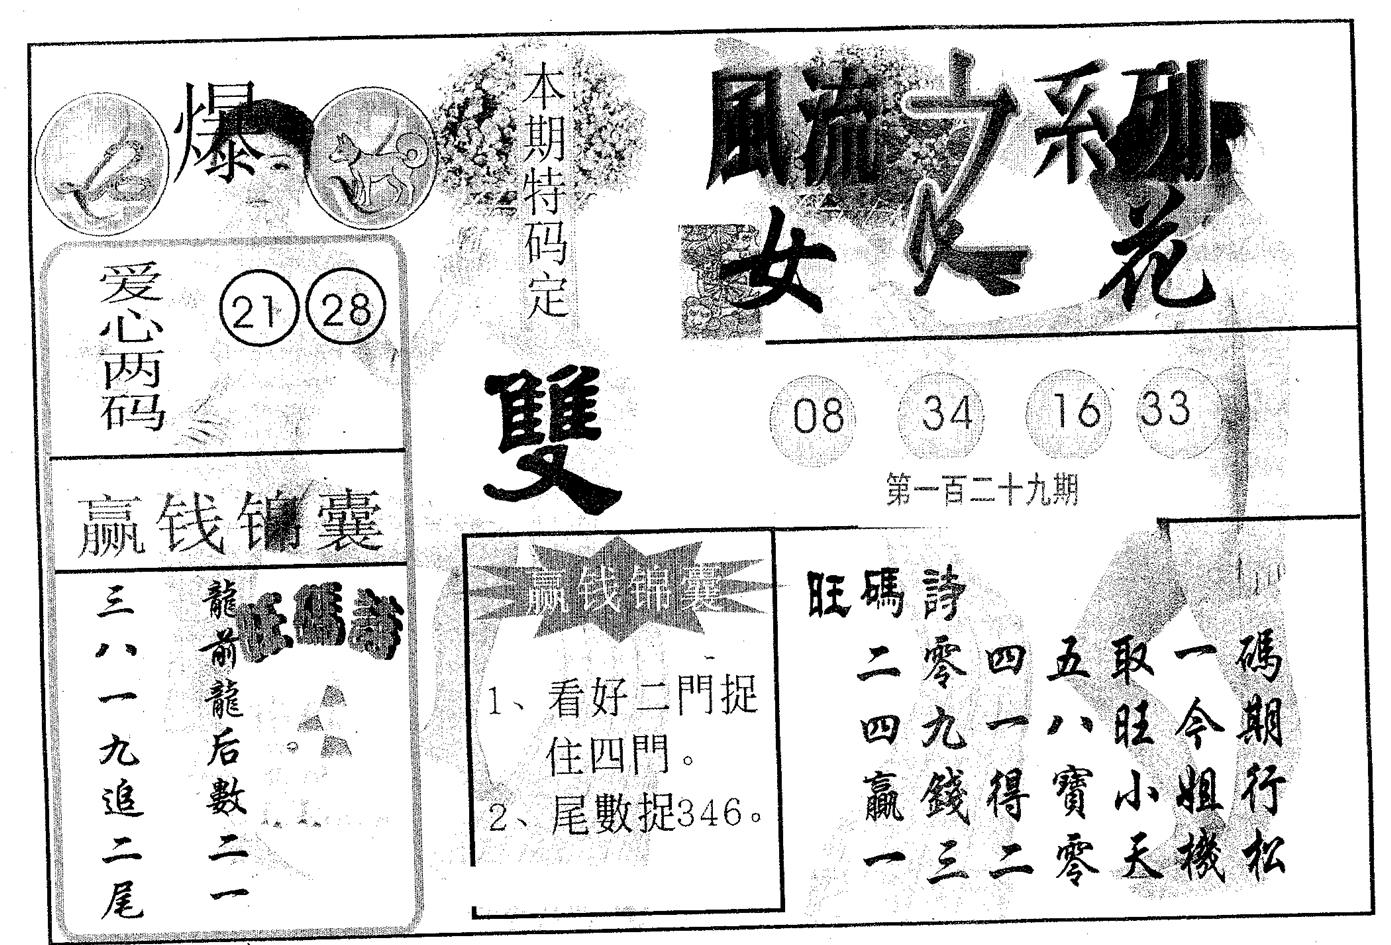 爆
本期特码定
雙
風流之系列
女人花
爱心两码
21 28
08 34 16 33
第一百二十九期
赢钱锦囊
旺碼詩
龍前龍后數二一
三八一九追二尾
赢钱锦囊
1、看好二門捉
住四門。
2、尾數捉346。
旺碼詩
二零四五取一碼
四九一八旺今期
贏錢得寶小姐行
一三二零天機松